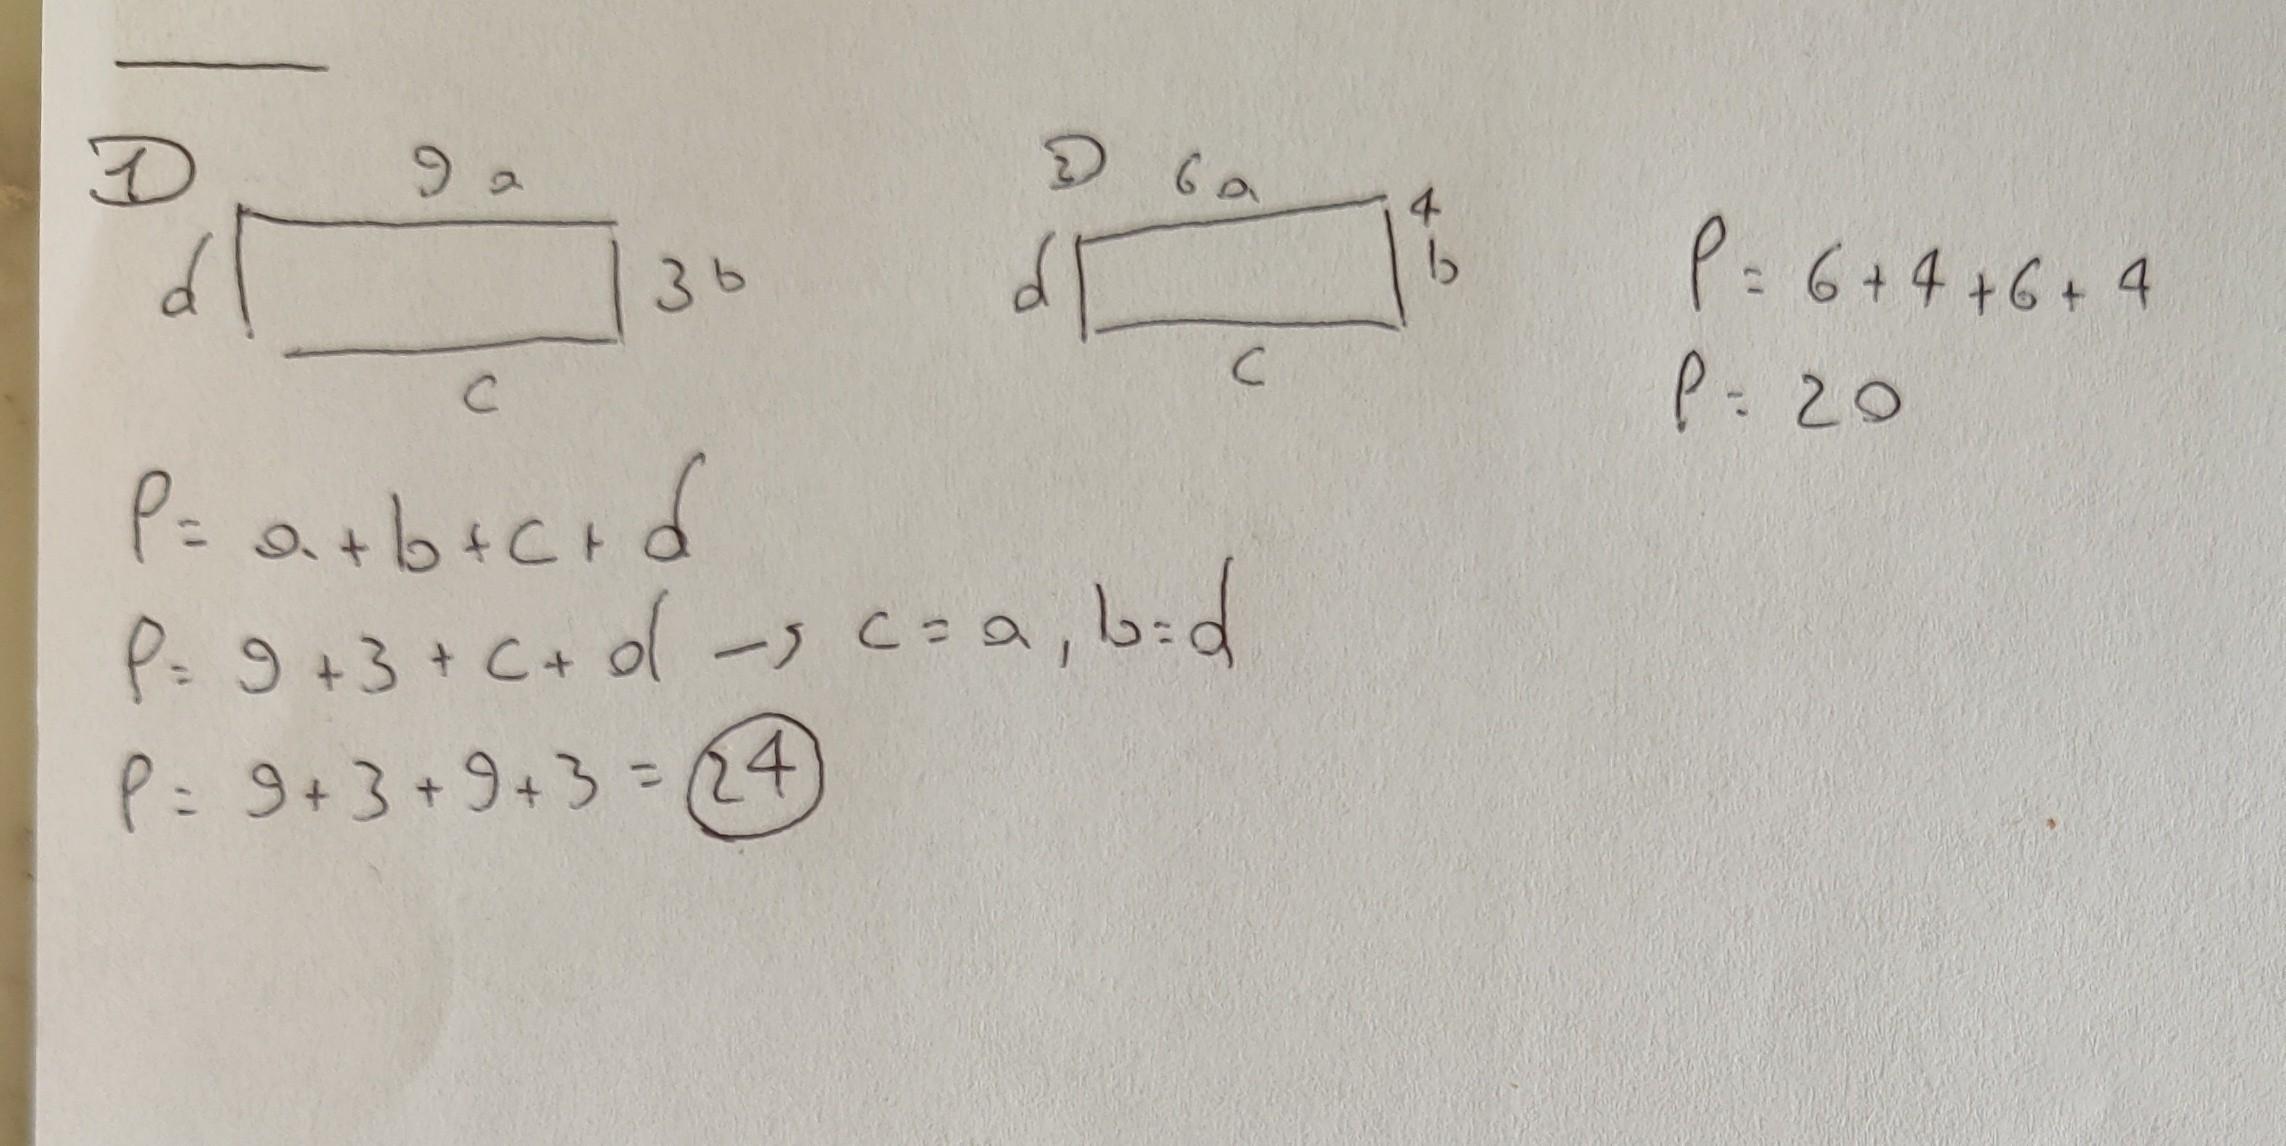 1
9 a
d
3 b
c
2
6 a
4
d
b
c
P = 6 + 4 + 6 + 4
P = 20
P = a + b + c + d
P = 9 + 3 + c + d → c = a , b = d
P = 9 + 3 + 9 + 3 = 24